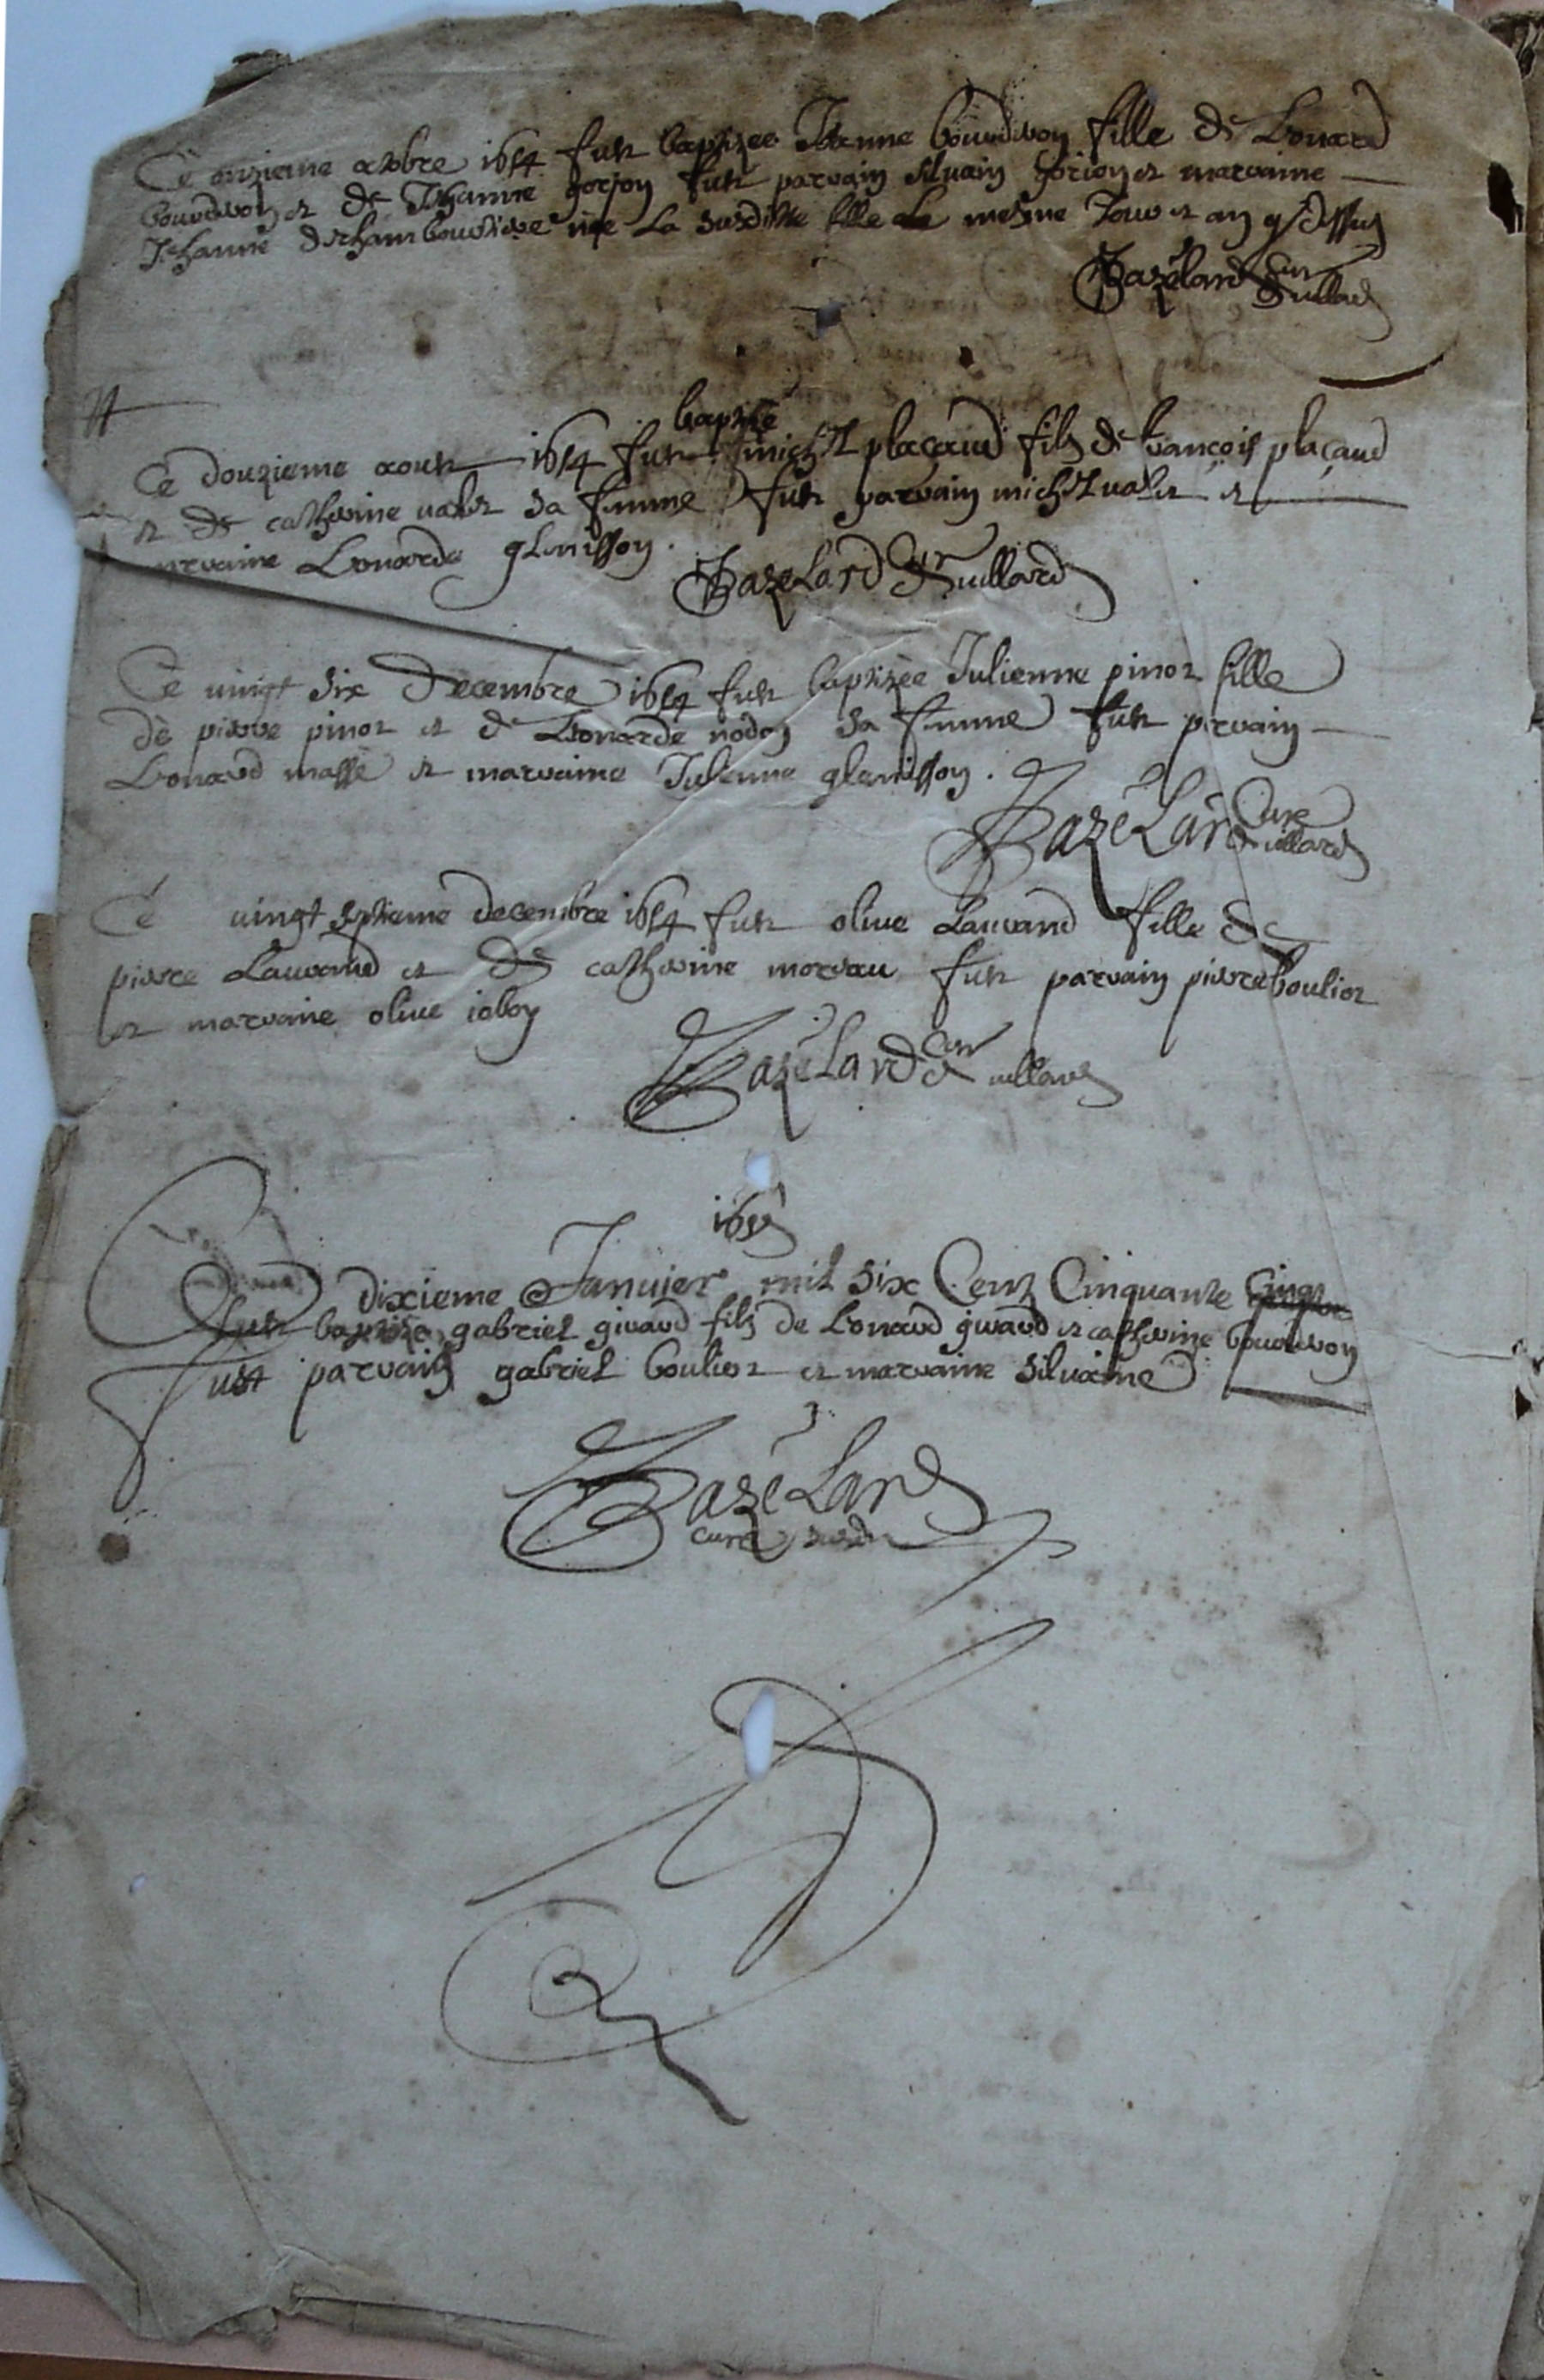 Ce onzieme octobre 1654 fut baptizee Jeanne bourdron fille de Lonard
bourdron et de Jehanne gorjon fut parrain silvain gorion et marraine
Jehanne dechambourdiere nee La susditte fille le mesme Jour et an q dessus
Bazelard Cur de uillard
baptize
Ce douzieme aoust 1654 fut michel placaud fils de francois placaud
et de catherine valet sa femme fut parrain michel valet et
marraine Lonarde glenisson.
Bazelard Cur de uillard
Ce uingt six decembre 1654 fut baptizee Julienne pinot fille
de pierre pinot et de Leonarde nodon sa femme fut parrain
Lonard massé et marraine Julienne glenisson.
Bazelard Cure de uillard
Ce uingt septieme decembre 1654 fut olive Lauraud fille de
pierre Lauraud et de catherine moreau fut parrain pierre bouliot
et marraine olive iabon
Bazelard Cur de uillard
1655
dixieme Januier mil six Cent Cinquante Cinq
fut baptize gabriel giraud fils de Lonard giraud et catherine bourdron
fust parrain gabriel bouliot et marraine silvaine
Bazelard
cure susdit